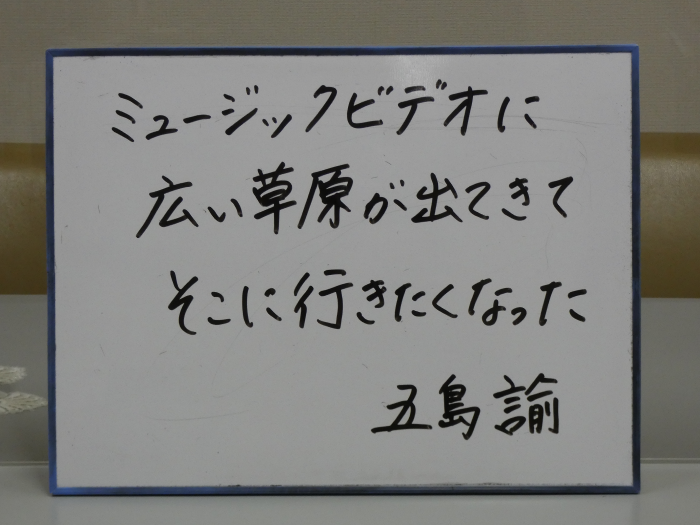 ミュージックビデオに
広い草原が出てきて
そこに行きたくなった
五島諭